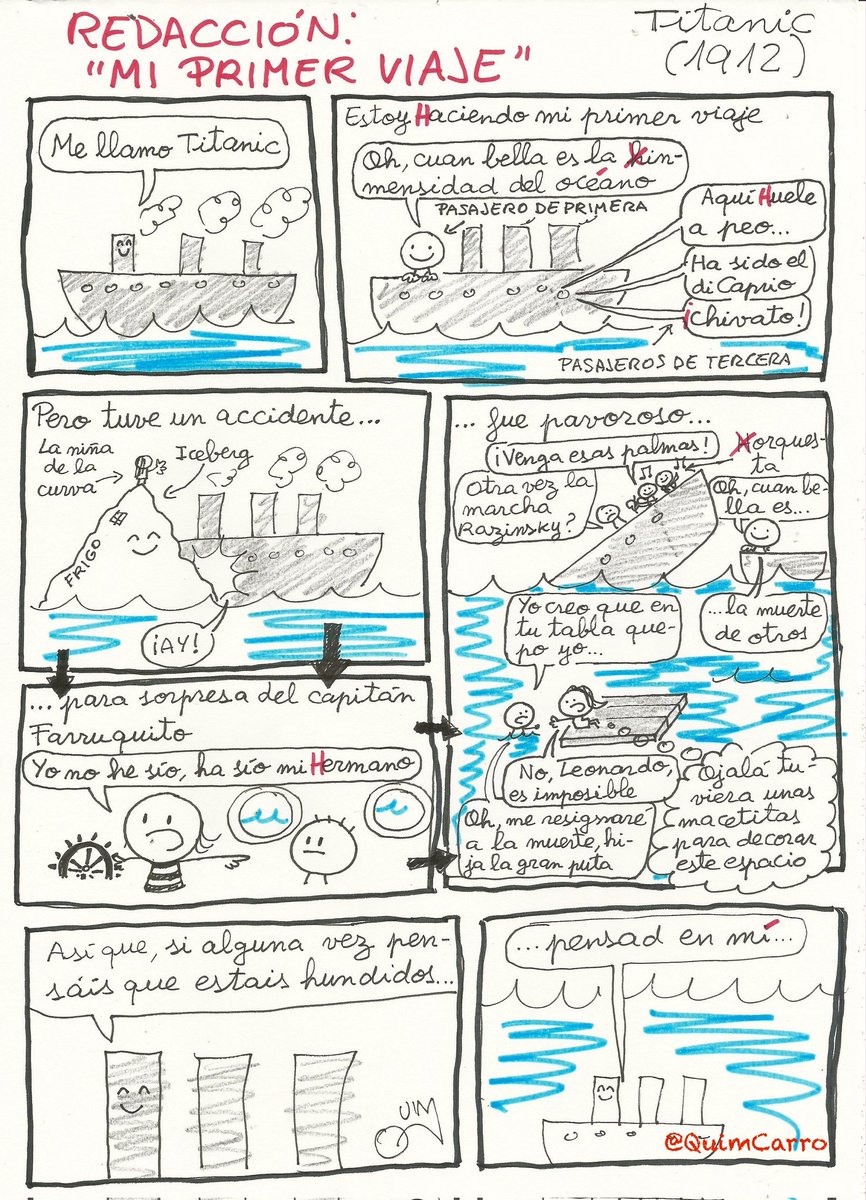 REDACCIÓN:
"MI PRIMER VIAJE"
Titanic
(1912)
Me llamo Titanic
Estoy Haciendo mi primer viaje
Oh, cuan bella es la in-
mensidad del océano
PASAJERO DE PRIMERA
Aquí Huele
a peo...
Ha sido el
di Caprio
¡Chivato!
PASAJEROS DE TERCERA
Pero tuve un accidente...
La niña
de la
curva
Iceberg
FRIGO
¡AY!
...para sorpresa del capitán
Farruquito
Yo no he sío, ha sío mi Hermano
... fue pavoroso...
¡Venga esas palmas!
orques-
ta
Otra vez la
marcha
Razinsky?
Oh, cuan be-
lla es...
...la muerte
de otros
Yo creo que en
tu tabla que-
po yo...
No, Leonardo,
es imposible
Oh, me resignaré
a la muerte, hi-
ja la gran puta
Ojalá tu-
viera unas
macetitas
para decorar
este espacio
Así que, si alguna vez pen-
sáis que estais hundidos...
QUIM
...pensad en mí...
@QuimCarro